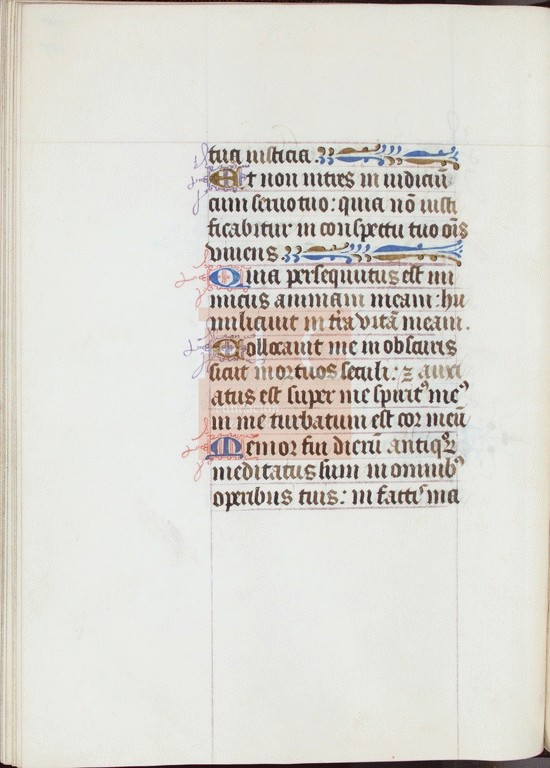 tua iusticia.
Et non intres in iudiciū
cum seruo tuo: quia nō iusti
ficabitur in conspectu tuo oīs
viuens
Quia persequutus est ini
micus animam meam: hu
miliauit in tr̄a vitā meam.
Collocauit me in obscuris
sicut mortuos seculi: ⁊ anxi
atus est super me spirit᷒ me᷒
in me turbatum est cor meū
Memor fui dierū antiquoꝝ
meditatus sum in omnib᷒
operibus tuis: in factis ma